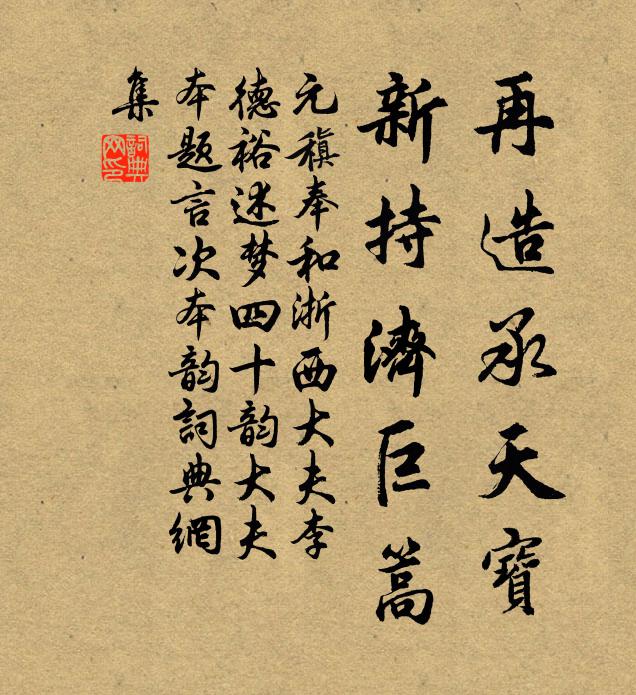 再造承天寶
新持濟巨篙
元稹奉和浙西大夫李
德裕述梦四十韵大夫
本題言次本韵詞典網
集
詞典網印